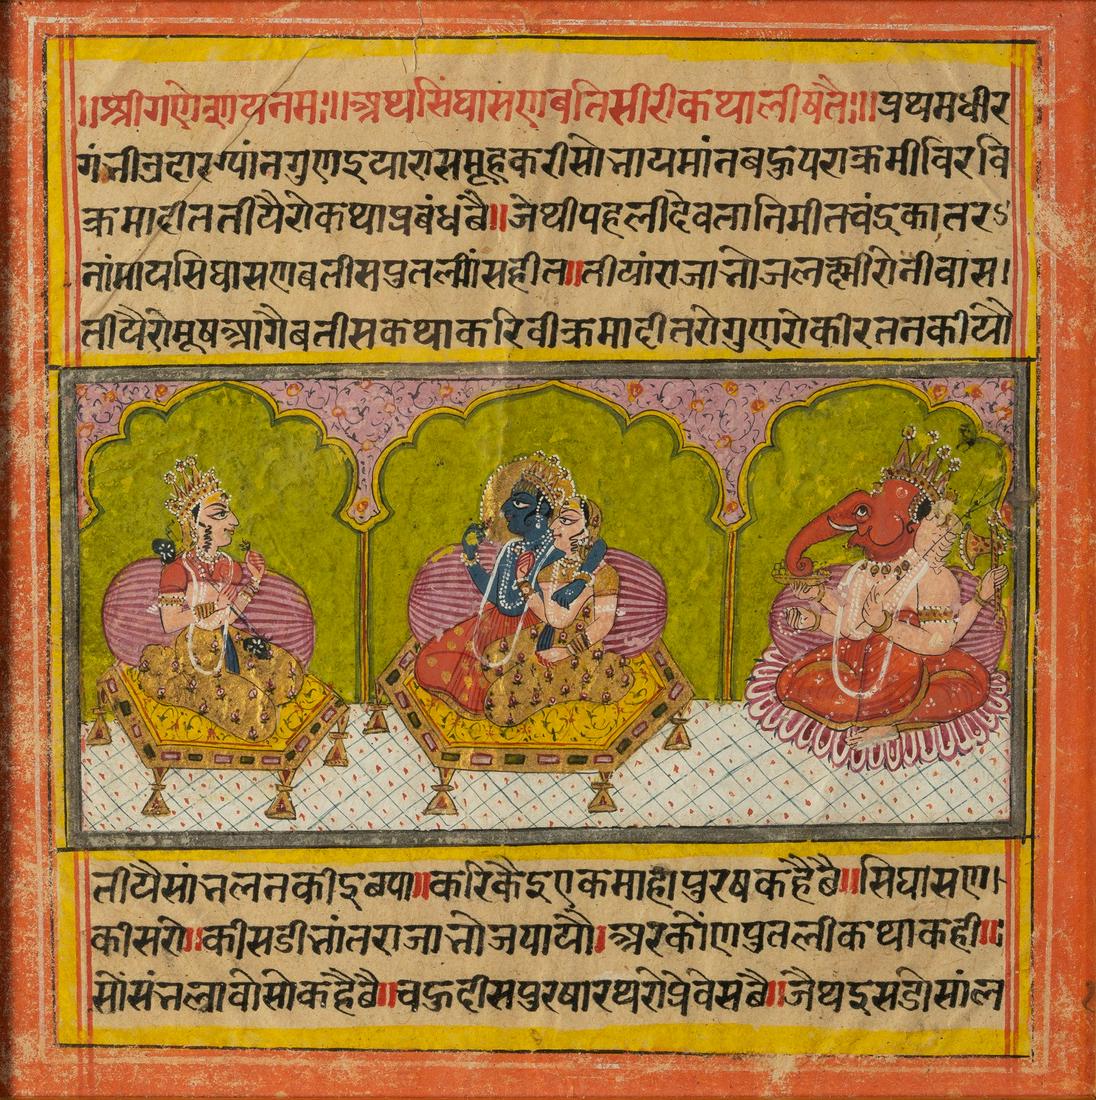 ॥श्रीगणेशायनमः॥अथसिंघासणबतिसीरीकथालीषतैः॥प्रथमधीर
गंनीउदारग्यांनगुणइयारासमूहकरीसोनायमांनबहुपराक्रमीविरवि
क्रमादीततीयैरीकथाप्रबंधबै॥जेथीपहलीदेवतातिमीतचंद्रकातरऽ
नांमायसिघासणबतीसपुतल्यांसहीत॥तीयांराजानोजलक्ष्मीरोनीवास।
तीयैरोमूषआगैबतीसकथाकरिवीक्रमादीतरोगुणरोकीरतनकीयौ
तीयैसांनलनकीइबपा॥करिकैइएकमाहापुरषकहैबै॥सिघासण।
कीसरो॥कीसडीनांतराजानोजपायौ।अरकोंणपुतलीकथाकही॥;
सोंसंनलावोसोकहैबै॥चहुदीसपुरषारथरोप्रवेसबै॥जैथइसडीसांल